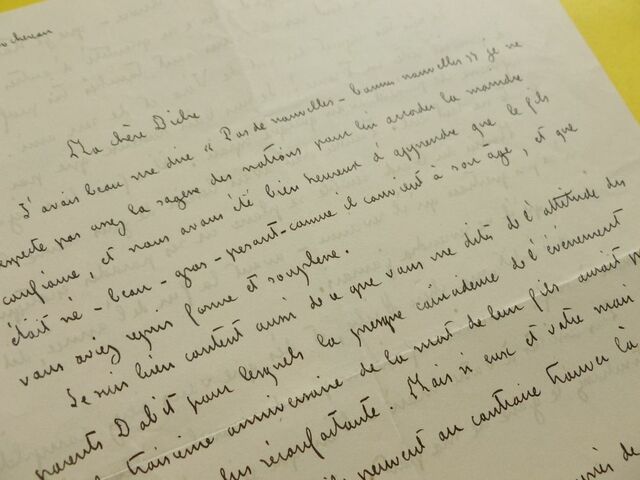 Ma chère Didie
J'avais beau me dire "Pas de nouvelles - bonnes nouvelles" je ne
respecte pas assez la sagesse des nations pour lui accorder la moindre
confiance, et nous avons été bien heureux d'apprendre que le fils
était né - beau - gros - pesant - comme il convient à son âge, et que
vous aviez repris forme et souplesse.
Je suis bien content aussi de ce que vous me dites de l'attitude des
parents Dabit pour lesquels la presque coïncidence de l'événement
troisième anniversaire de la mort de leur fils aurait p
plus réconfortante. Mais si eux et votre mari
peuvent au contraire trouver là
de